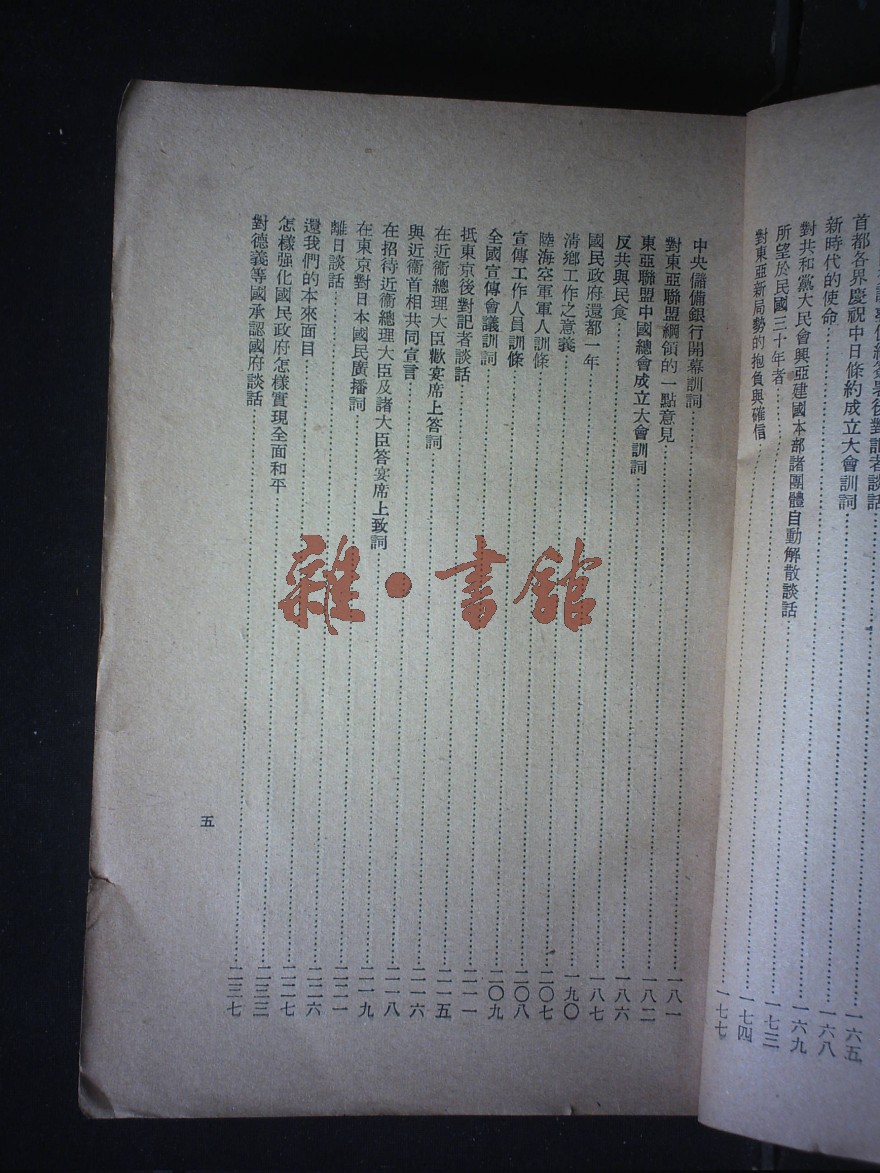 後對記者談話……一六五
首都各界慶祝中日條約成立大會訓詞……一六八
新時代的使命……一六九
對共和黨大民會興亞建國本部諸團體自動解散談話……一七三
所望於民國三十年者……一七四
對東亞新局勢的抱負與確信……一七七
中央儲備銀行開幕訓詞……一八一
對東亞聯盟綱領的一點意見……一八二
東亞聯盟中國總會成立大會訓詞……一八六
反共與民食……一八七
國民政府還都一年……一九〇
清鄉工作之意義……二〇七
陸海空軍軍人訓條……二〇八
宣傳工作人員訓條……二〇九
全國宣傳會議訓詞……二一一
抵東京後對記者談話……二一五
在近衞總理大臣歡宴席上答詞……二一六
與近衞首相共同宣言……二一八
在招待近衞總理大臣及諸大臣答宴席上致詞……二一九
在東京對日本國民廣播詞……二二一
離日談話……二二六
還我們的本來面目……二二七
怎樣强化國民政府怎樣實現全面和平……二三三
對德義等國承認國府談話……二三七
五
雜·書館